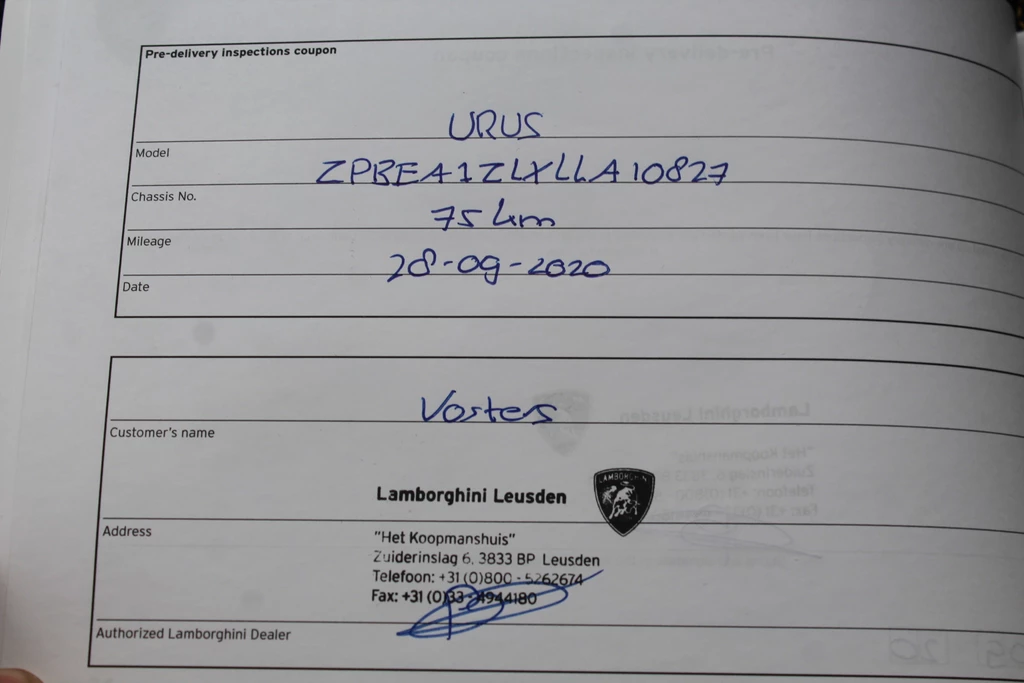 Pre-delivery inspections coupon
URUS
Model
ZPBEA1ZLXLLA10827
Chassis No.
75 km
Mileage
28-09-2020
Date
Vosters
Customer's name
Lamborghini Leusden
LAMBORGHINI
Address
"Het Koopmanshuis"
Zuiderinslag 6, 3833 BP Leusden
Telefoon: +31 (0)800 - 5262674
Fax: +31 (0)33 - 4944180
Authorized Lamborghini Dealer